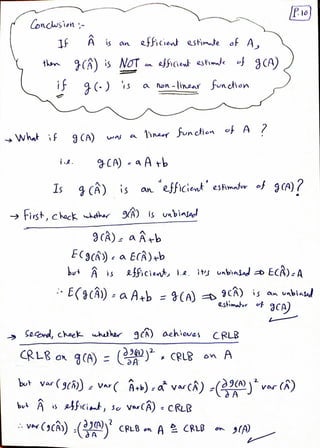 P.10
Conclusion :-
If Â is an efficient estimate of A,
then g(Â) is NOT an efficient estimate of g(A)
if g(.) is a non-linear function
→ What if g(A) was a linear function of A ?
i.e. g(A) = aA+b
Is g(Â) is an "efficient" estimator of g(A)?
→ First, check whether g(Â) is unbiased
g(Â) = a Â+b
E(g(Â)) = a E(Â)+b
but Â is efficient, i.e. its unbiased ⇒ E(Â)=A
∴ E(g(Â)) = a A+b = g(A) ⇒ g(Â) is an unbiased
estimator of g(A)
→ Second, check whether g(Â) achieves CRLB
CRLB on g(A) = (∂g(A)/∂A)² · CRLB on A
but var(g(Â)) = var( Â+b) = a² var(Â) = (∂g(A)/∂A)² var(Â)
but Â is efficient, so var(Â) = CRLB
∴ var(g(Â)) = (∂g(A)/∂A)² CRLB on A ≜ CRLB on g(A)